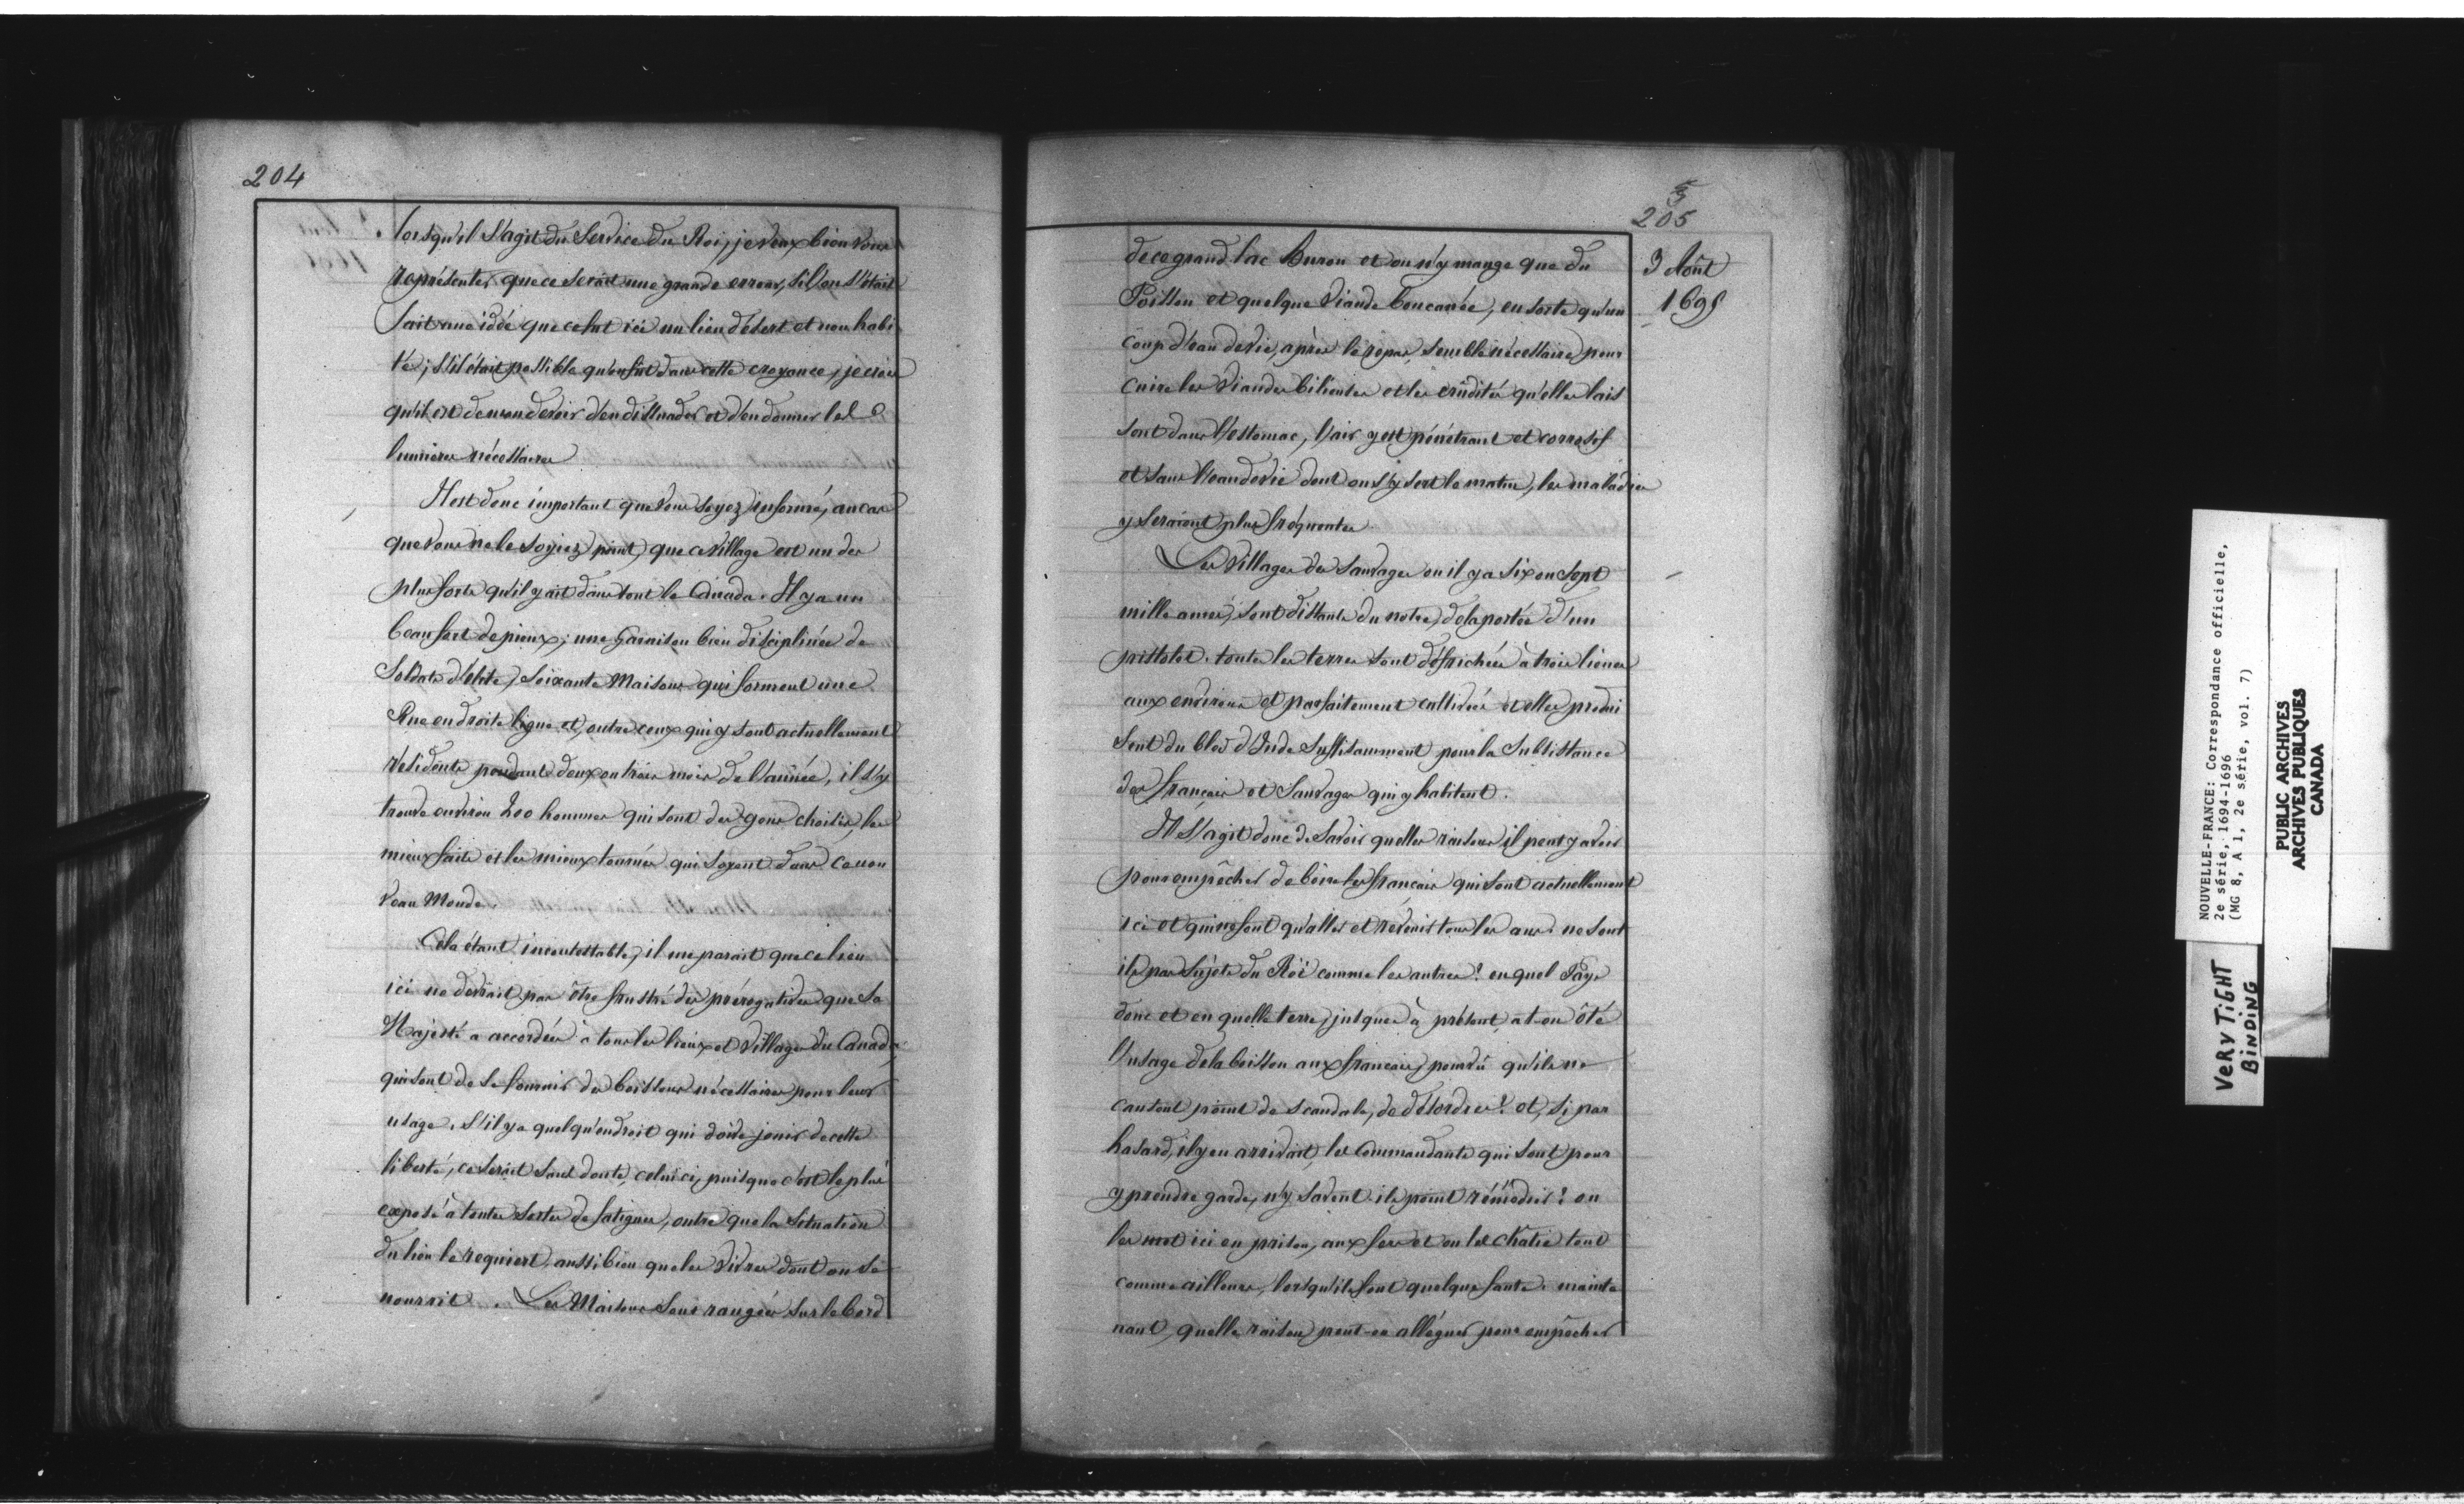 204
lorsqu'il s'agit du Service du Roi, je veux bien vous
représenter que ce serait une grande erreur, si l'on s'était
fait une idée que ce fut ici un lieu désert et non habi
té; s'il était possible qu'on fut dans cette croyance, je crois
qu'il est de mon devoir d'en dissuader et d'en donner les
lumières nécessaires
Il est donc important que vous soyez informé, au cas
que vous ne le soyiez point, que ce village est un des
plus forts qu'il y ait dans tout le Canada. Il y a un
beau fort de pieux; une Garnison bien disciplinée de
Soldats d'élite, Soixante Maisons qui forment une
Rue en droite ligne et, outre ceux qui y sont actuellement
résidents pendant deux ou trois mois de l'année, il s'y
trouve environ 200 hommes qui sont des gens choisis, les
mieux faits et les mieux tournés qui soyent dans ce nou
veau Monde.
Cela étant incontestable, il me parait que ce lieu
ici ne devrait pas être frustré des prérogatives que Sa
Majesté a accordées à tous les lieux et Villages du Canada,
qui sont de se fournir des boissons nécessaires pour leur
usage. S'il y a quelqu'endroit qui doive jouir de cette
liberté, ce serait sans doute, celui ci, puisque c'est le plus
exposé à toutes sortes de fatigues, outre que la situation
du lieu le requiert, aussi bien que les vivres dont on se
nourrit. Les Maisons sont rangées sur le bord
5
205
3 Août
1695
de ce grand lac Huron et on n'y mange que du
Poisson et quelque viande boucanée, en sorte qu'un
coup d'eau de vie, après le repas, semble nécessaire pour
cuire les viandes bilieuses et les crudités qu'elles lais
sent dans l'estomac, l'air y est pénétrant et corrosif
et sans l'eau de vie dont on s'y sert le matin, les maladies
y seraient plus fréquentes
Les Villages des Sauvages où il y a six ou sept
mille ames, sont distants du notre, de la portée d'un
pistolet. toutes les terres sont défrichées à trois lieues
aux environs et parfaitement cultivées et elles produi
sent du bled d'Inde suffisamment pour la subsistance
des français et Sauvages qui y habitent.
Il s'agit donc de savoir quelles raisons il peut y avoir
pour empêcher de boire les français qui sont actuellement
ici et qui ne font qu'aller et revenir tous les ans. ne sont
ils pas sujets du Roi comme les autres? en quel Pays
donc et en quelle terre, jusques à présent, a t-on ôté
l'usage de la boisson aux français, pourvû qu'ils ne
causent point de scandale, de désordres? et, si par
hasard, il y en arrivait, les Commandants qui sont pour
y prendre garde, n'y savent-ils point rémédier? on
les met ici en prison, aux fers et on les châtie tout
comme ailleurs, lorsqu'ils font quelque faute. mainte
nant, quelle raison peut-on alléguer pour empêcher
NOUVELLE-FRANCE: Correspondance officielle,
2e série, 1694-1696
(MG 8, A 1, 2e série, vol. 7)
PUBLIC ARCHIVES
ARCHIVES PUBLIQUES
CANADA
VERY TIGHT
BINDING